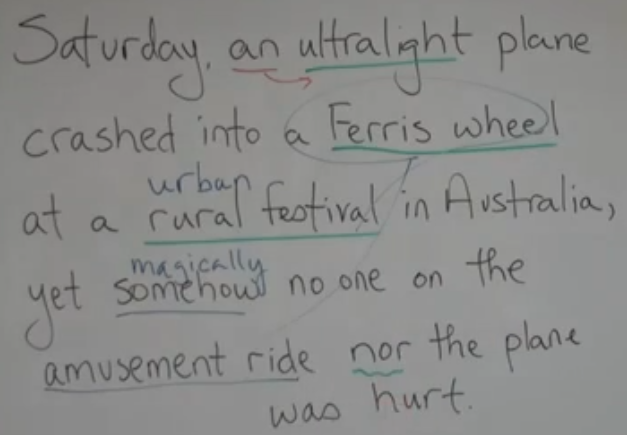 Saturday, an ultralight plane
crashed into a Ferris wheel
urban
at a rural festival in Australia,
magically
yet somehow no one on the
amusement ride nor the plane
was hurt.